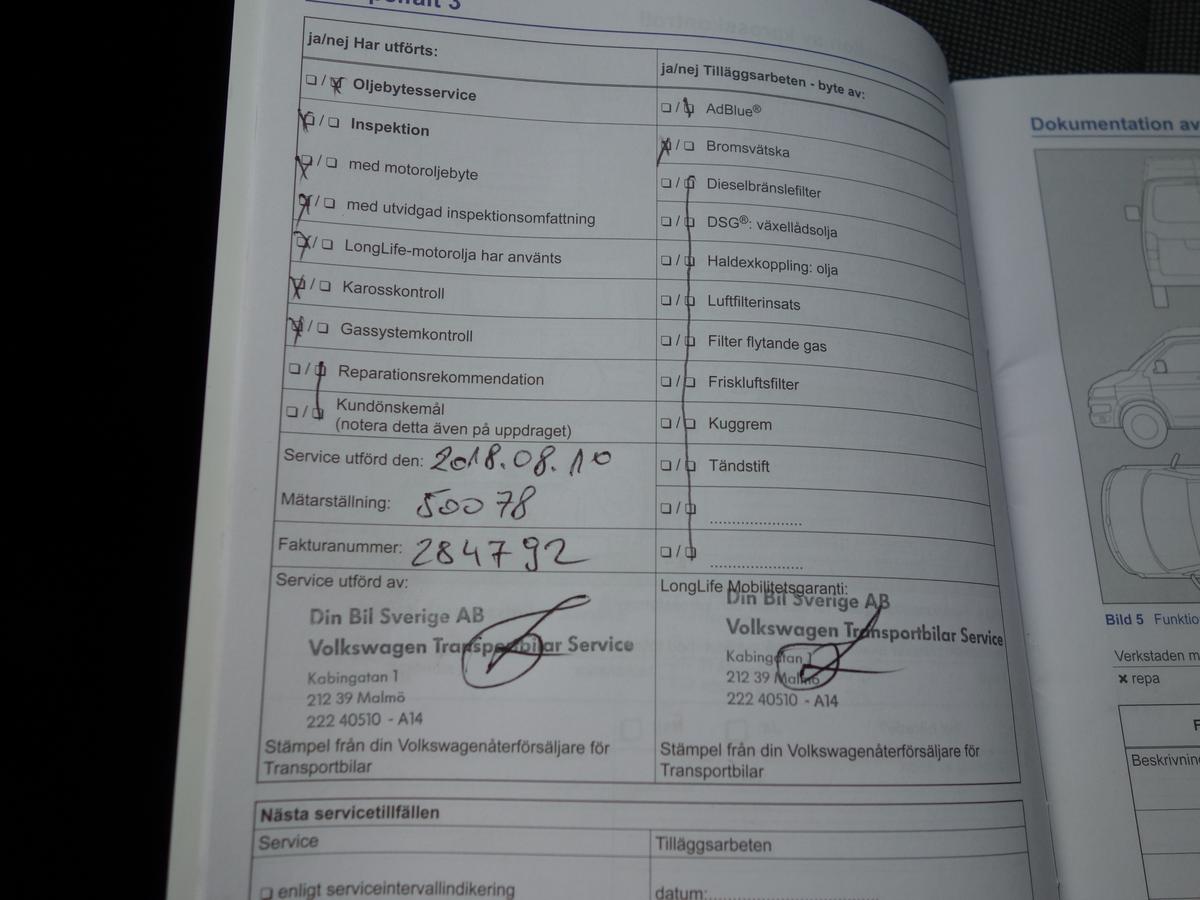 3
ja/nej Har utförts:
☐ / ☒ Oljebytesservice
☒ / ☐ Inspektion
☒ / ☐ med motoroljebyte
☒ / ☐ med utvidgad inspektionsomfattning
☒ / ☐ LongLife-motorolja har använts
☒ / ☐ Karosskontroll
☒ / ☐ Gassystemkontroll
☐ / ☒ Reparationsrekommendation
☐ / ☒ Kundönskemål
(notera detta även på uppdraget)
Service utförd den: 2018.08.10
Mätarställning: 50078
Fakturanummer: 284792
Service utförd av:
Din Bil Sverige AB
Volkswagen Transportbilar Service
Kabingatan 1
212 39 Malmö
222 40510 - A14
Stämpel från din Volkswagenåterförsäljare för
Transportbilar
ja/nej Tilläggsarbeten - byte av:
☐ / ☒ AdBlue®
☒ / ☐ Bromsvätska
☐ / ☒ Dieselbränslefilter
☐ / ☒ DSG®: växellådsolja
☐ / ☒ Haldexkoppling: olja
☐ / ☒ Luftfilterinsats
☐ / ☒ Filter flytande gas
☐ / ☒ Friskluftsfilter
☐ / ☒ Kuggrem
☐ / ☒ Tändstift
☐ / ☒ ....................
☐ / ☒ ....................
LongLife Mobilitetsgaranti:
Din Bil Sverige AB
Volkswagen Transportbilar Service
Kabingatan 1
212 39 Malmö
222 40510 - A14
Stämpel från din Volkswagenåterförsäljare för
Transportbilar
Nästa servicetillfällen
Service
☐ enligt serviceintervallindikering
Tilläggsarbeten
datum:
Dokumentation av
Bild 5 Funktio
Verkstaden m
✖ repa
F
Beskrivning